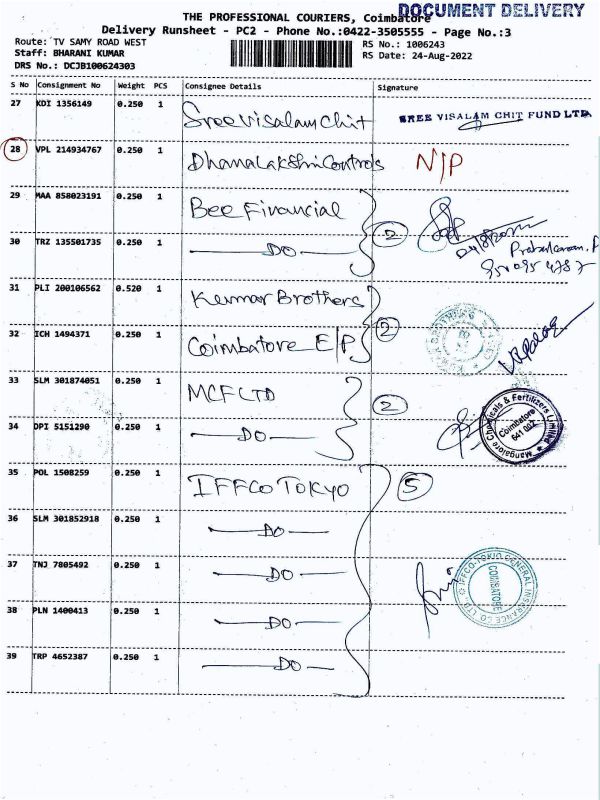 DOCUMENT DELIVERY
THE PROFESSIONAL COURIERS, Coimbatore
Delivery Runsheet - PC2 - Phone No.:0422-3505555 - Page No.:3
Route: TV SAMY ROAD WEST
RS No.: 1006243
Staff: BHARANI KUMAR
RS Date: 24-Aug-2022
DRS No.: DCJB100624303
S No Consignment No Weight PCS Consignee Details Signature
27 KDI 1356149 0.250 1 Sree Visalam Chit SREE VISALAM CHIT FUND LTD.
28 VPL 214934767 0.250 1 DhanaLakshmi Controls N/P
29 MAA 858023191 0.250 1 Bee Financial
2
30 TRZ 135501735 0.250 1 DO
24/8/2022
31 PLI 200106562 0.520 1 Kumar Brothers
2
32 ICH 1494371 0.250 1 Coimbatore E/P
33 SLM 301874051 0.250 1 MCF LTD
2
Mangalore Chemicals & Fertilizers Limited
Coimbatore
641 002
34 DPI 5151290 0.250 1 DO
35 POL 1508259 0.250 1 IFFCO TOKYO 5
36 SLM 301852918 0.250 1 DO
37 TNJ 7805492 0.250 1 DO
IFFCO-TOKIO GENERAL INSURANCE CO. LTD.
COIMBATORE
38 PLN 1400413 0.250 1 DO
39 TRP 4652387 0.250 1 DO